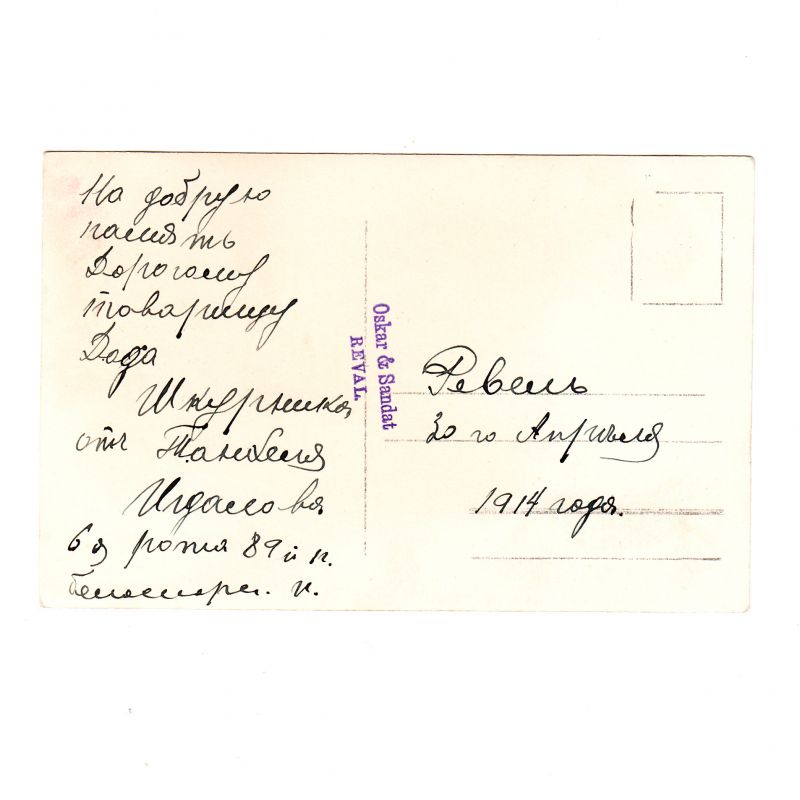 На добрую
память
Дорогому
товарищу
Дода
Шкурника
отъ Танхеля
Игдалова
6 я рота 89 й п.
беломорс. п.
Oskar & Sandat
REVAL.
Ревель
30 го Апрѣля
1914 года.